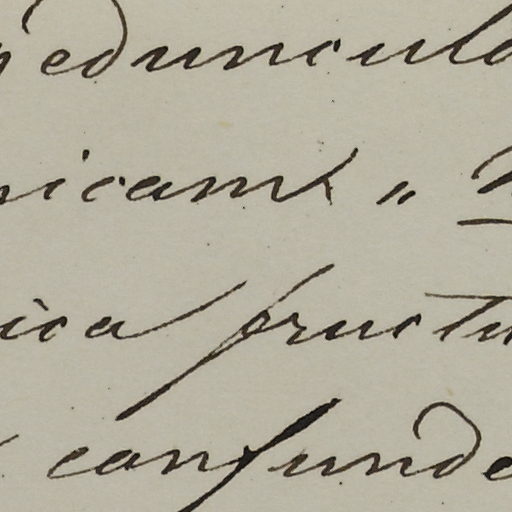 pedunculo
nicans „
ica fructu
confunde